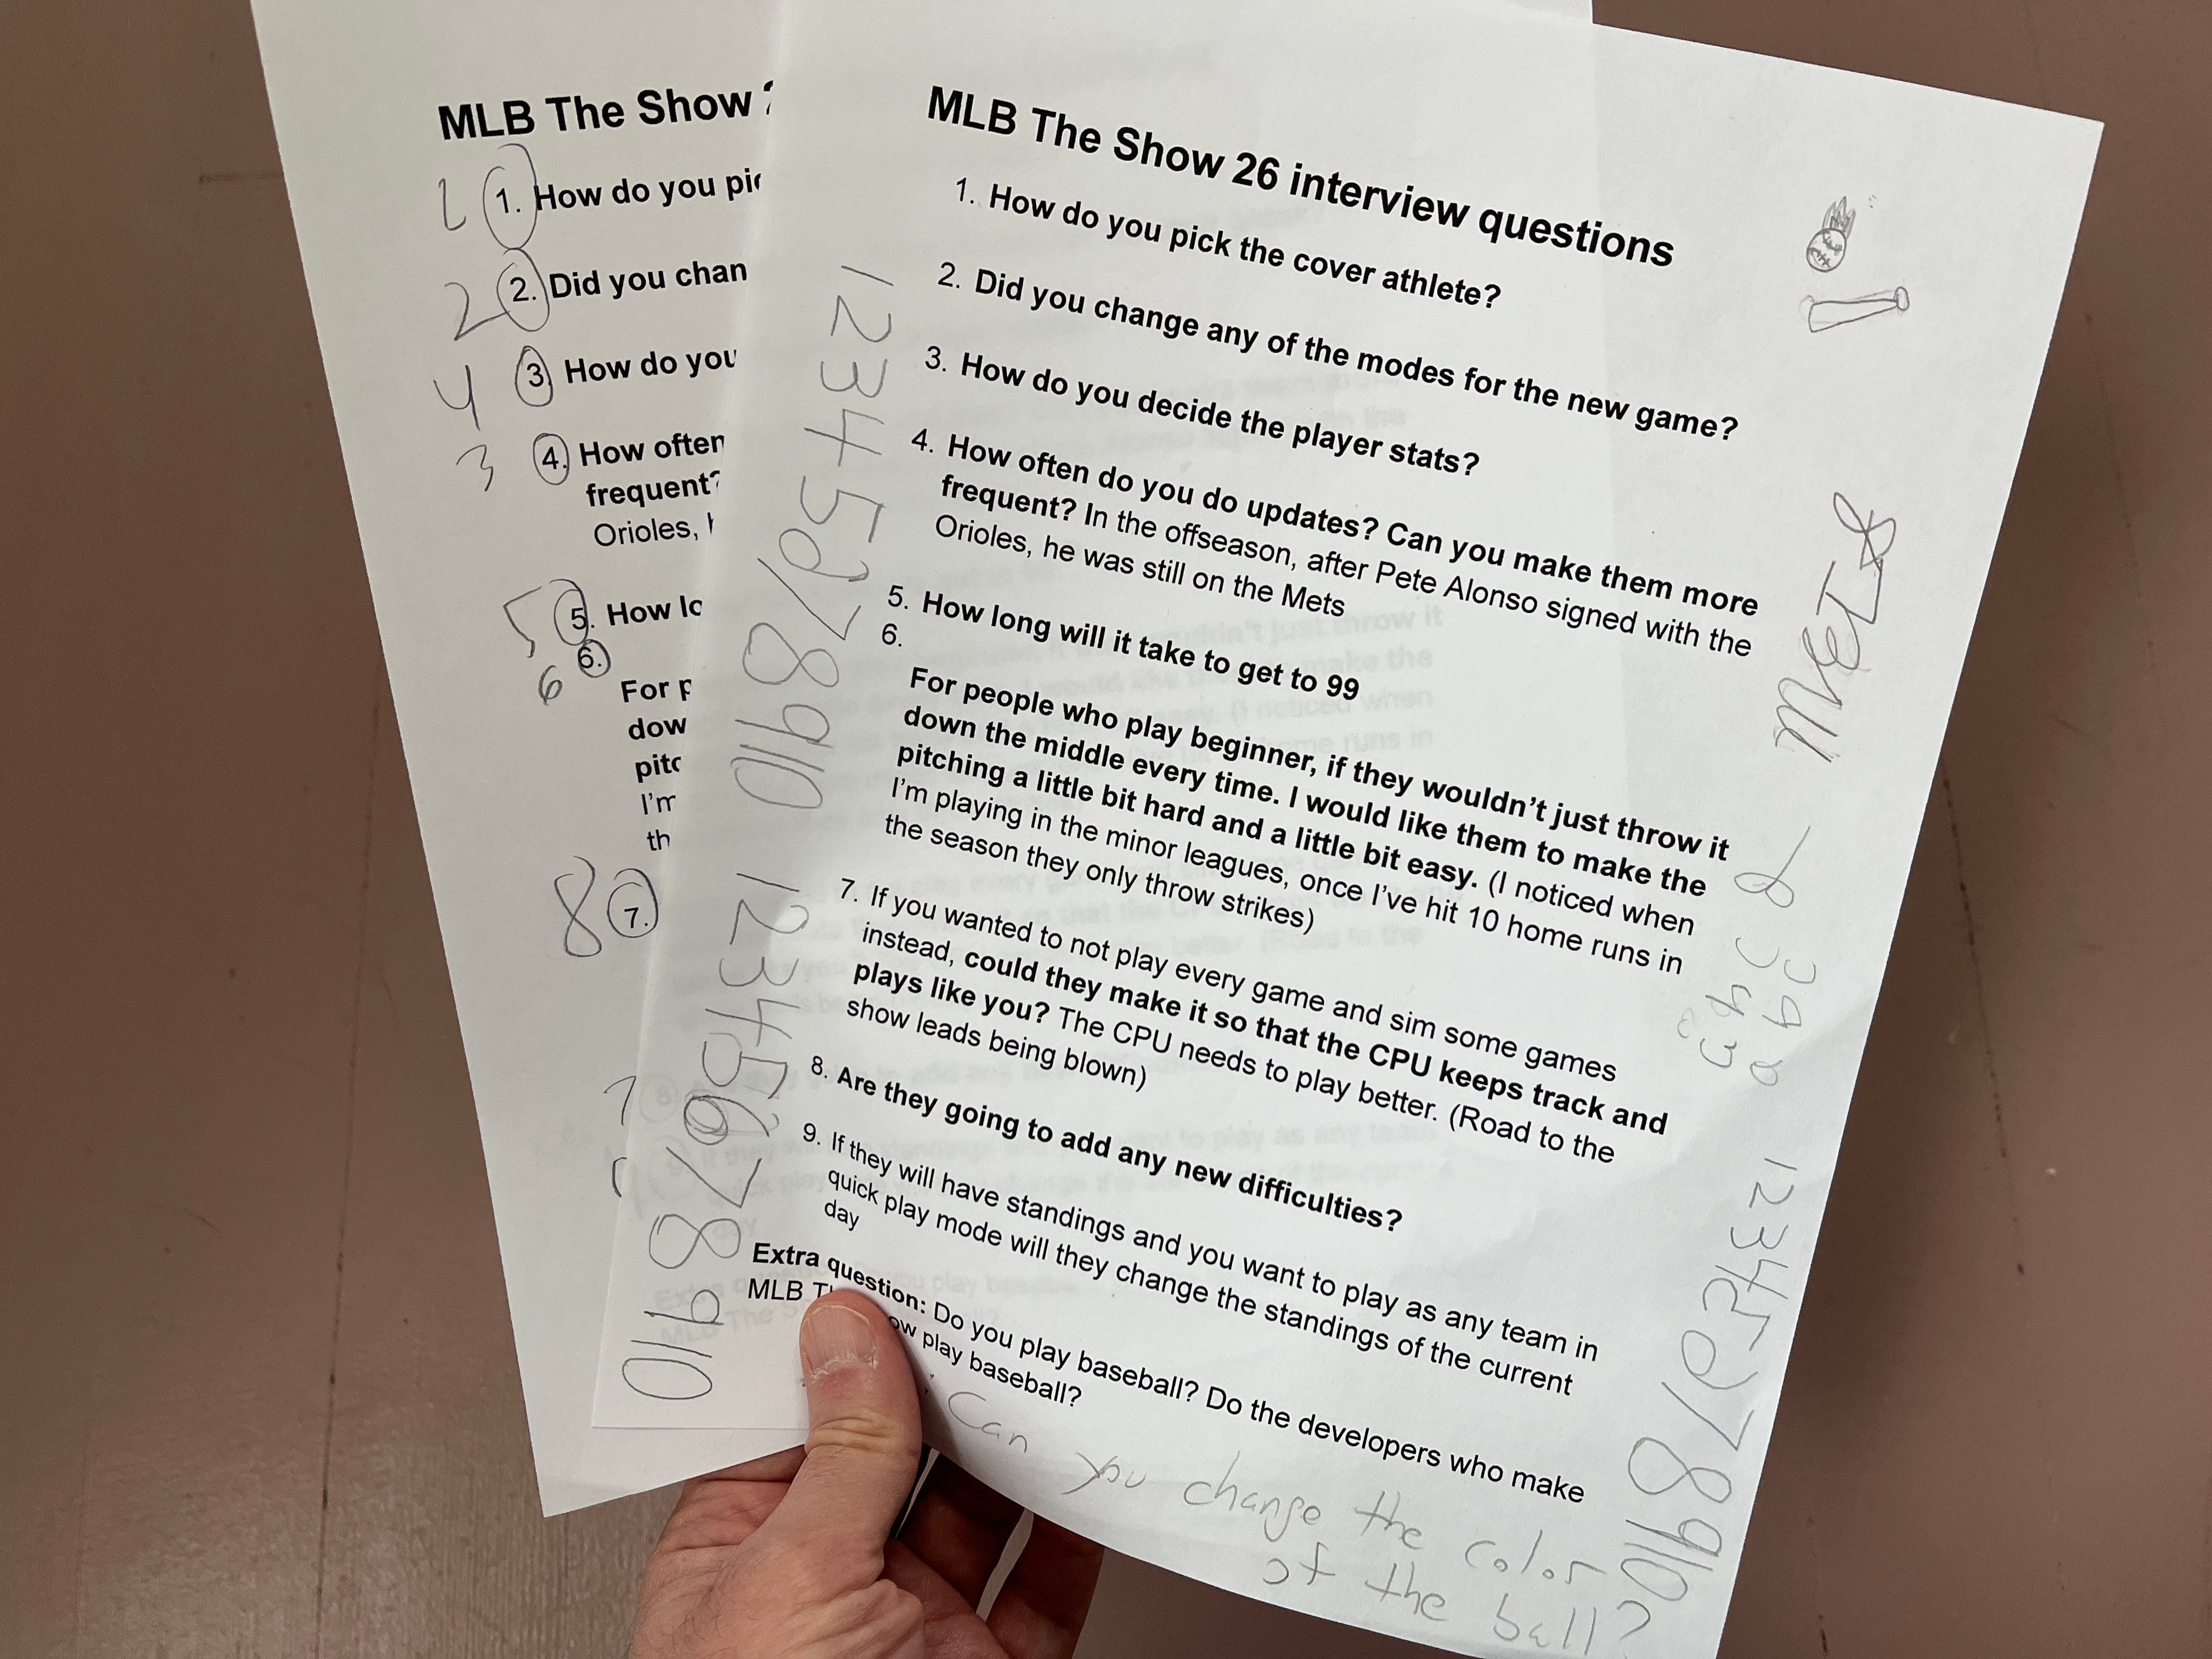 MLB The Show
1. How do you pic
2. Did you chan
3. How do you
4. How often
frequent?
Orioles, h
5. How lo
6.
For p
dow
pitc
I'm
th
7.
1
2
4
3
5
6
8
7
MLB The Show 26 interview questions
1. How do you pick the cover athlete?
2. Did you change any of the modes for the new game?
3. How do you decide the player stats?
4. How often do you do updates? Can you make them more
frequent? In the offseason, after Pete Alonso signed with the
Orioles, he was still on the Mets
5. How long will it take to get to 99
6.
For people who play beginner, if they wouldn't just throw it
down the middle every time. I would like them to make the
pitching a little bit hard and a little bit easy. (I noticed when
I'm playing in the minor leagues, once I've hit 10 home runs in
the season they only throw strikes)
7. If you wanted to not play every game and sim some games
instead, could they make it so that the CPU keeps track and
plays like you? The CPU needs to play better. (Road to the
show leads being blown)
8. Are they going to add any new difficulties?
9. If they will have standings and you want to play as any team in
quick play mode will they change the standings of the current
day
Extra question: Do you play baseball? Do the developers who make
MLB The Show play baseball?
Can you change the color
of the ball?
1 2 3 4 5 6 7 8 9 10
1 2 3 4 5 6 7 8 9 10
1 2 3 4 5 6 7 8 9 10